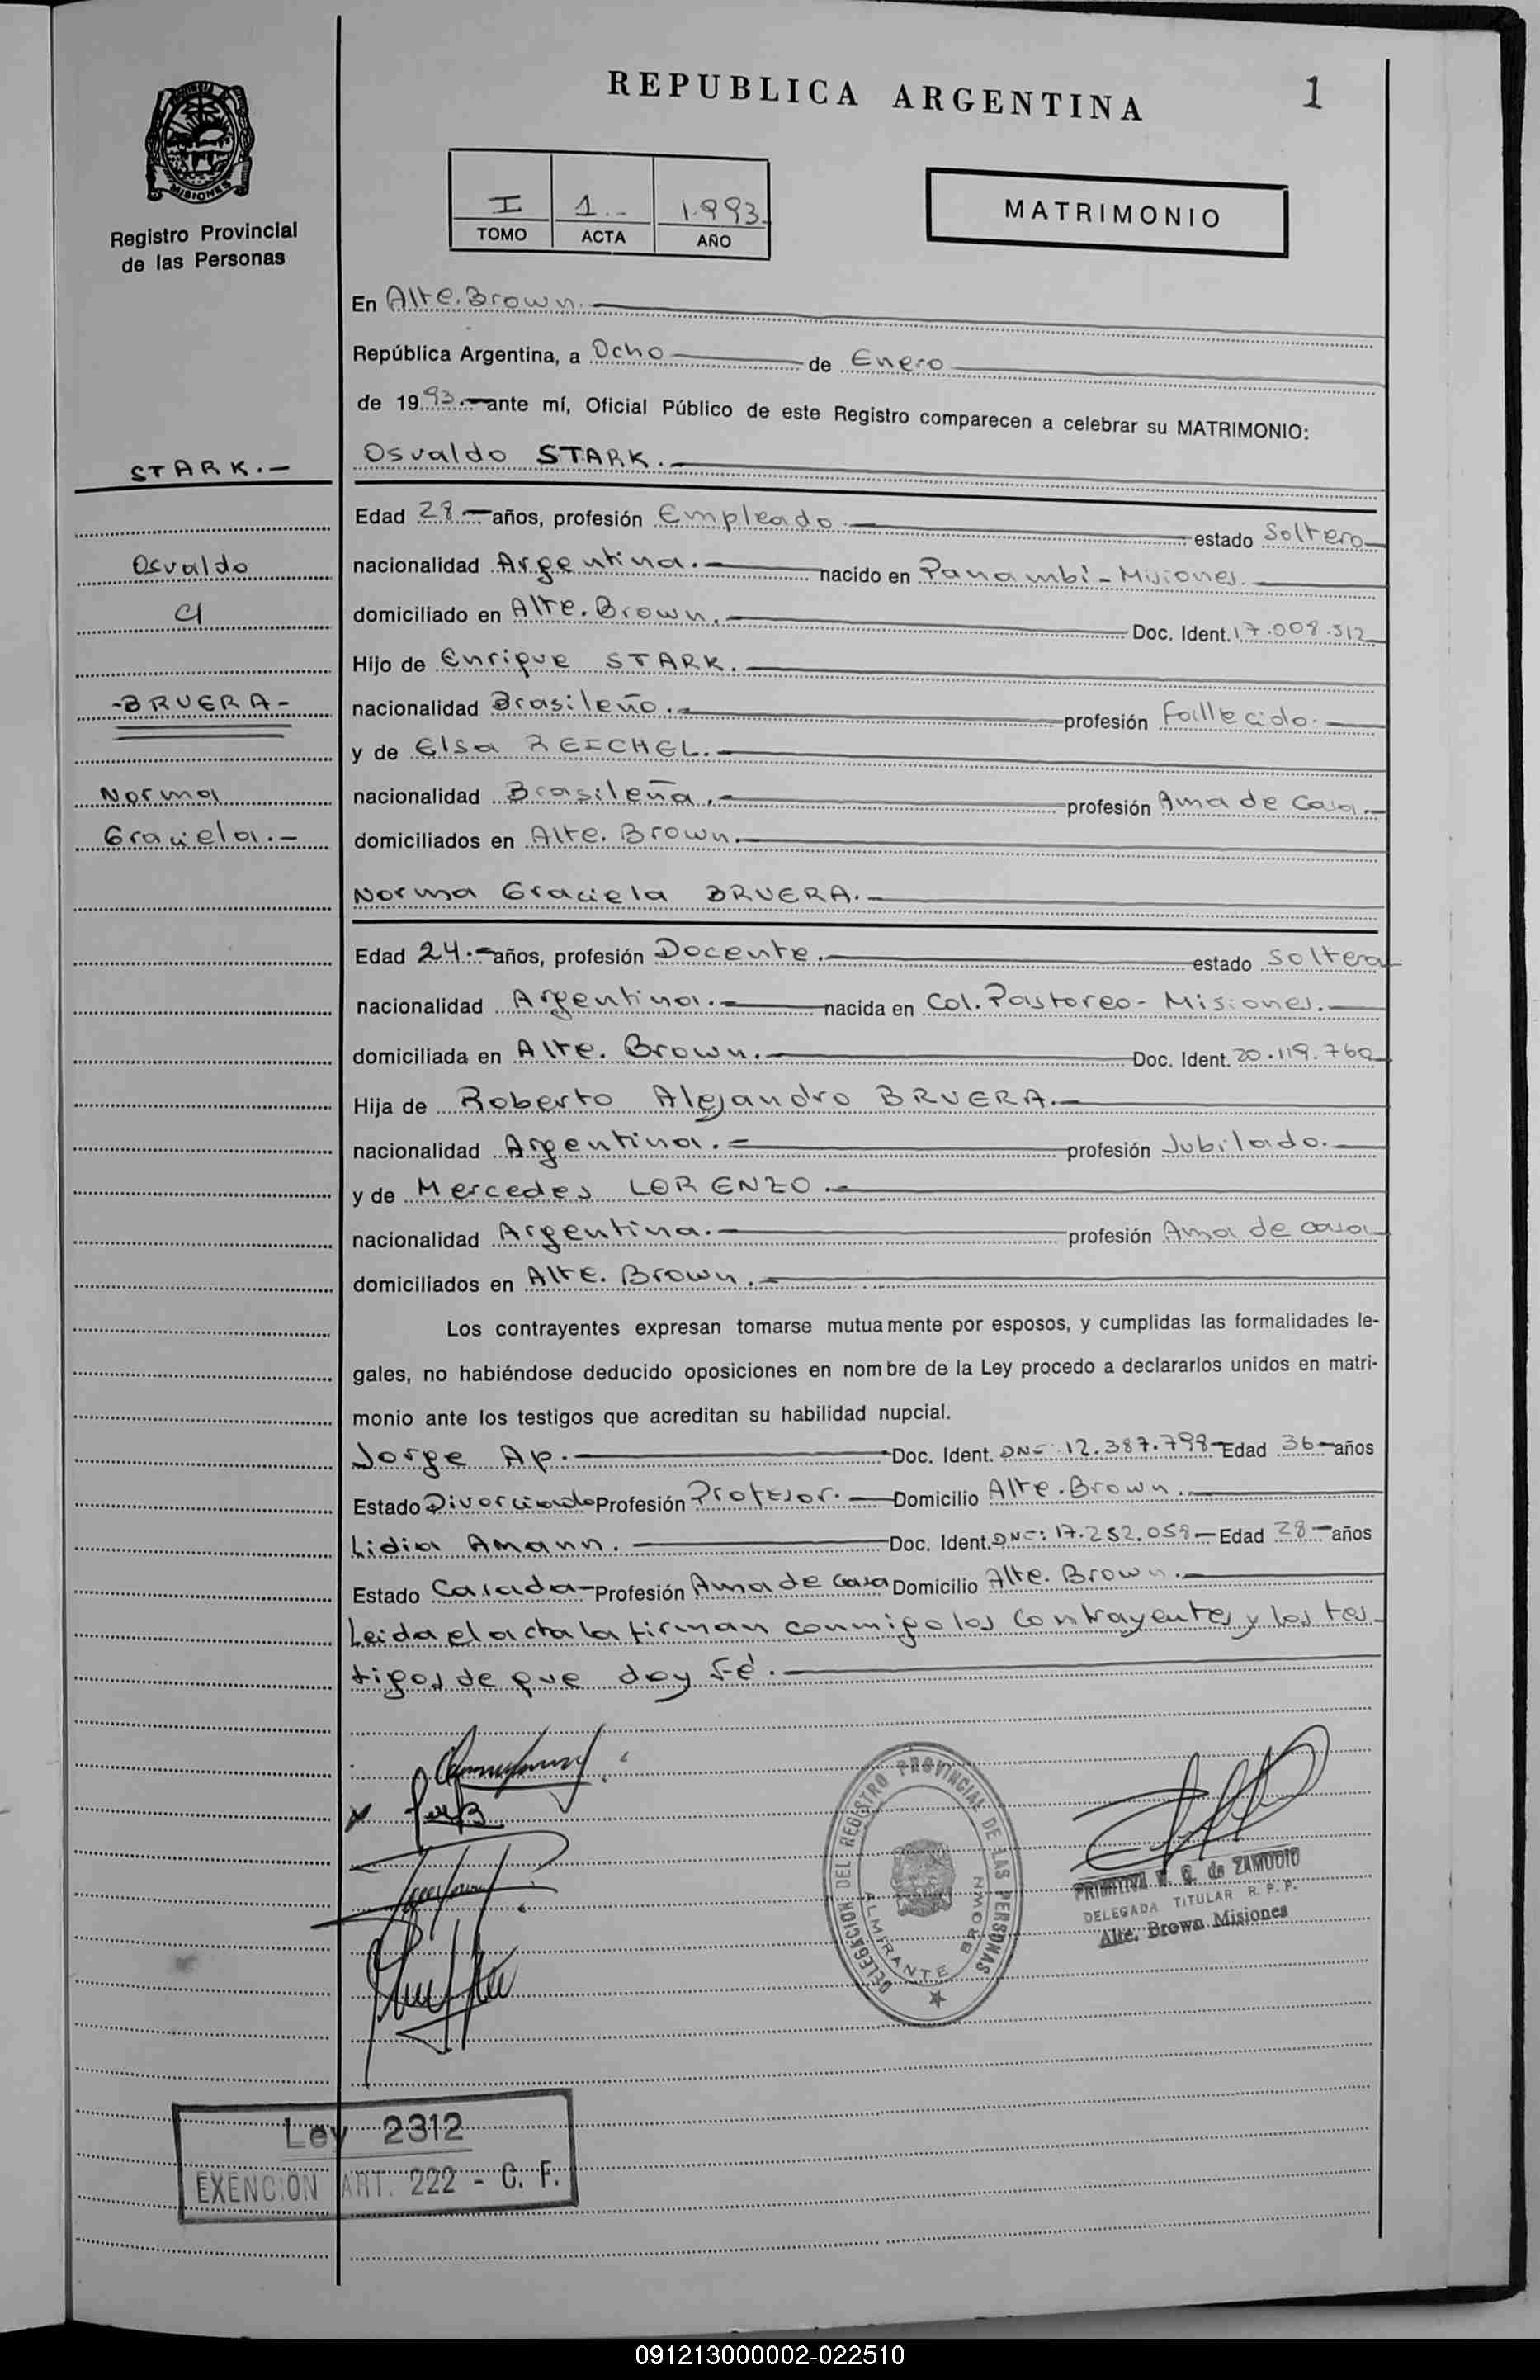 REPUBLICA ARGENTINA
1
MISIONES
Registro Provincial
de las Personas
I 1.- 1.993.
TOMO ACTA AÑO
MATRIMONIO
En Alte. Brown.
República Argentina, a Ocho de Enero
de 1993.- ante mí, Oficial Público de este Registro comparecen a celebrar su MATRIMONIO:
STARK.-
Osvaldo STARK.-
Edad 28.- años, profesión Empleado.- estado Soltero
Osvaldo
nacionalidad Argentina.- nacido en Panambí - Misiones.
c/
domiciliado en Alte. Brown.- Doc. Ident. 17.008.512
Hijo de Enrique STARK.
-BRUERA-
nacionalidad Brasileño.- profesión Fallecido.-
y de Elsa REICHEL.-
Norma
nacionalidad Brasileña.- profesión Ama de Casa.-
Graciela.-
domiciliados en Alte. Brown.-
Norma Graciela BRUERA.-
Edad 24.- años, profesión Docente.- estado Soltera
nacionalidad Argentina.- nacida en Col. Pastoreo - Misiones.-
domiciliada en Alte. Brown.- Doc. Ident. 20.119.760
Hija de Roberto Alejandro BRUERA.-
nacionalidad Argentina.- profesión Jubilado.-
y de Mercedes LORENZO.-
nacionalidad Argentina.- profesión Ama de casa
domiciliados en Alte. Brown.-
Los contrayentes expresan tomarse mutuamente por esposos, y cumplidas las formalidades le-
gales, no habiéndose deducido oposiciones en nombre de la Ley procedo a declararlos unidos en matri-
monio ante los testigos que acreditan su habilidad nupcial.
Jorge Ap.- Doc. Ident. DNI: 12.387.798- Edad 36- años
Estado Divorciado Profesión Profesor.- Domicilio Alte. Brown.-
Lidia Amann.- Doc. Ident. DNI: 17.252.058- Edad 28- años
Estado Casada- Profesión Ama de Casa Domicilio Alte. Brown.-
Leida el acta la firman conmigo los contrayentes y los tes-
tigos de que doy Fé.-
DELEGACION DEL REGISTRO PROVINCIAL DE LAS PERSONAS
ALMIRANTE BROWN
PRIMITIVA de ZAMUDIO
DELEGADA TITULAR R. P. P.
Alte. Brown Misiones
Ley 2312
EXENCION ART. 222 - C. F.
091213000002-022510